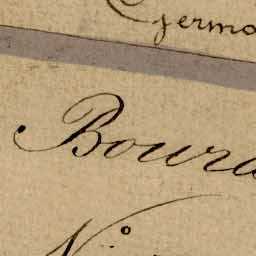 Germo
Boura
Ni